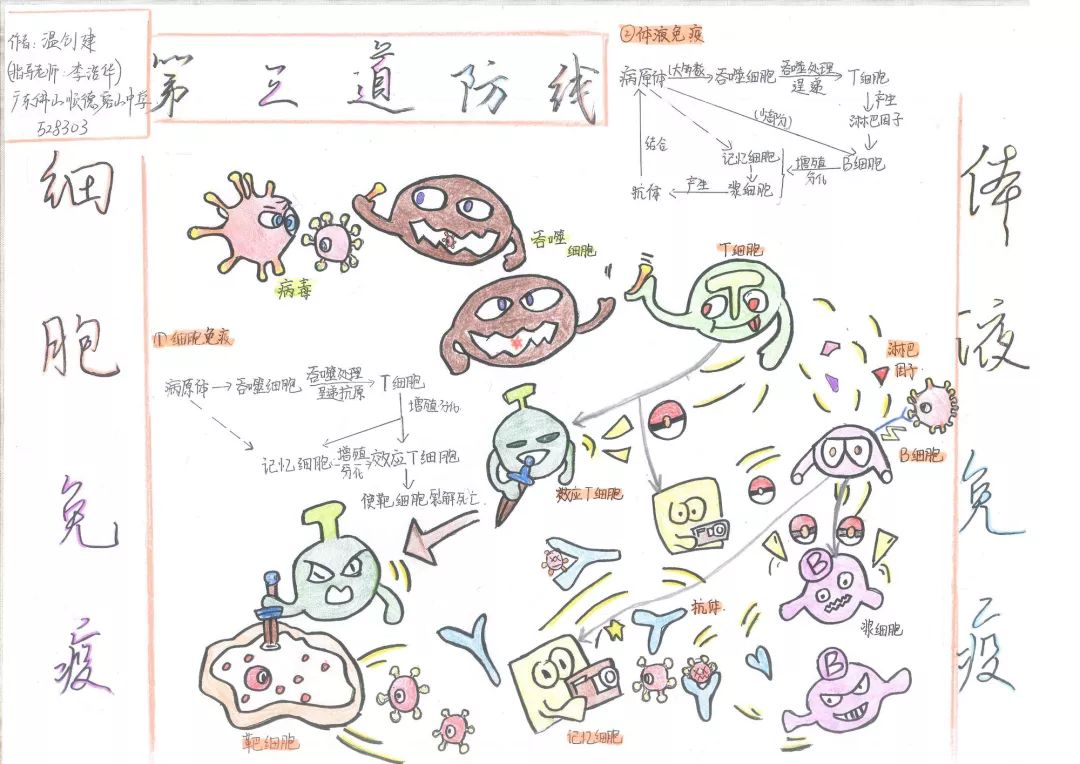 作者:温创建
(指导老师:李浩华)
广东佛山顺德容山中学
528303
第三道防线
②体液免疫
病原体 (大多数) 吞噬细胞 吞噬处理 呈递 T细胞
产生
淋巴因子
(少数)
结合
记忆细胞 增殖 分化 B细胞
抗体 产生 浆细胞
细胞免疫
体液免疫
病毒
吞噬细胞
T细胞
①细胞免疫
病原体 吞噬细胞 吞噬处理 呈递抗原 T细胞
增殖分化
记忆细胞 增殖 分化 效应T细胞
使靶细胞裂解死亡
淋巴
因子
B细胞
效应T细胞
抗体
B
浆细胞
B
靶细胞
记忆细胞